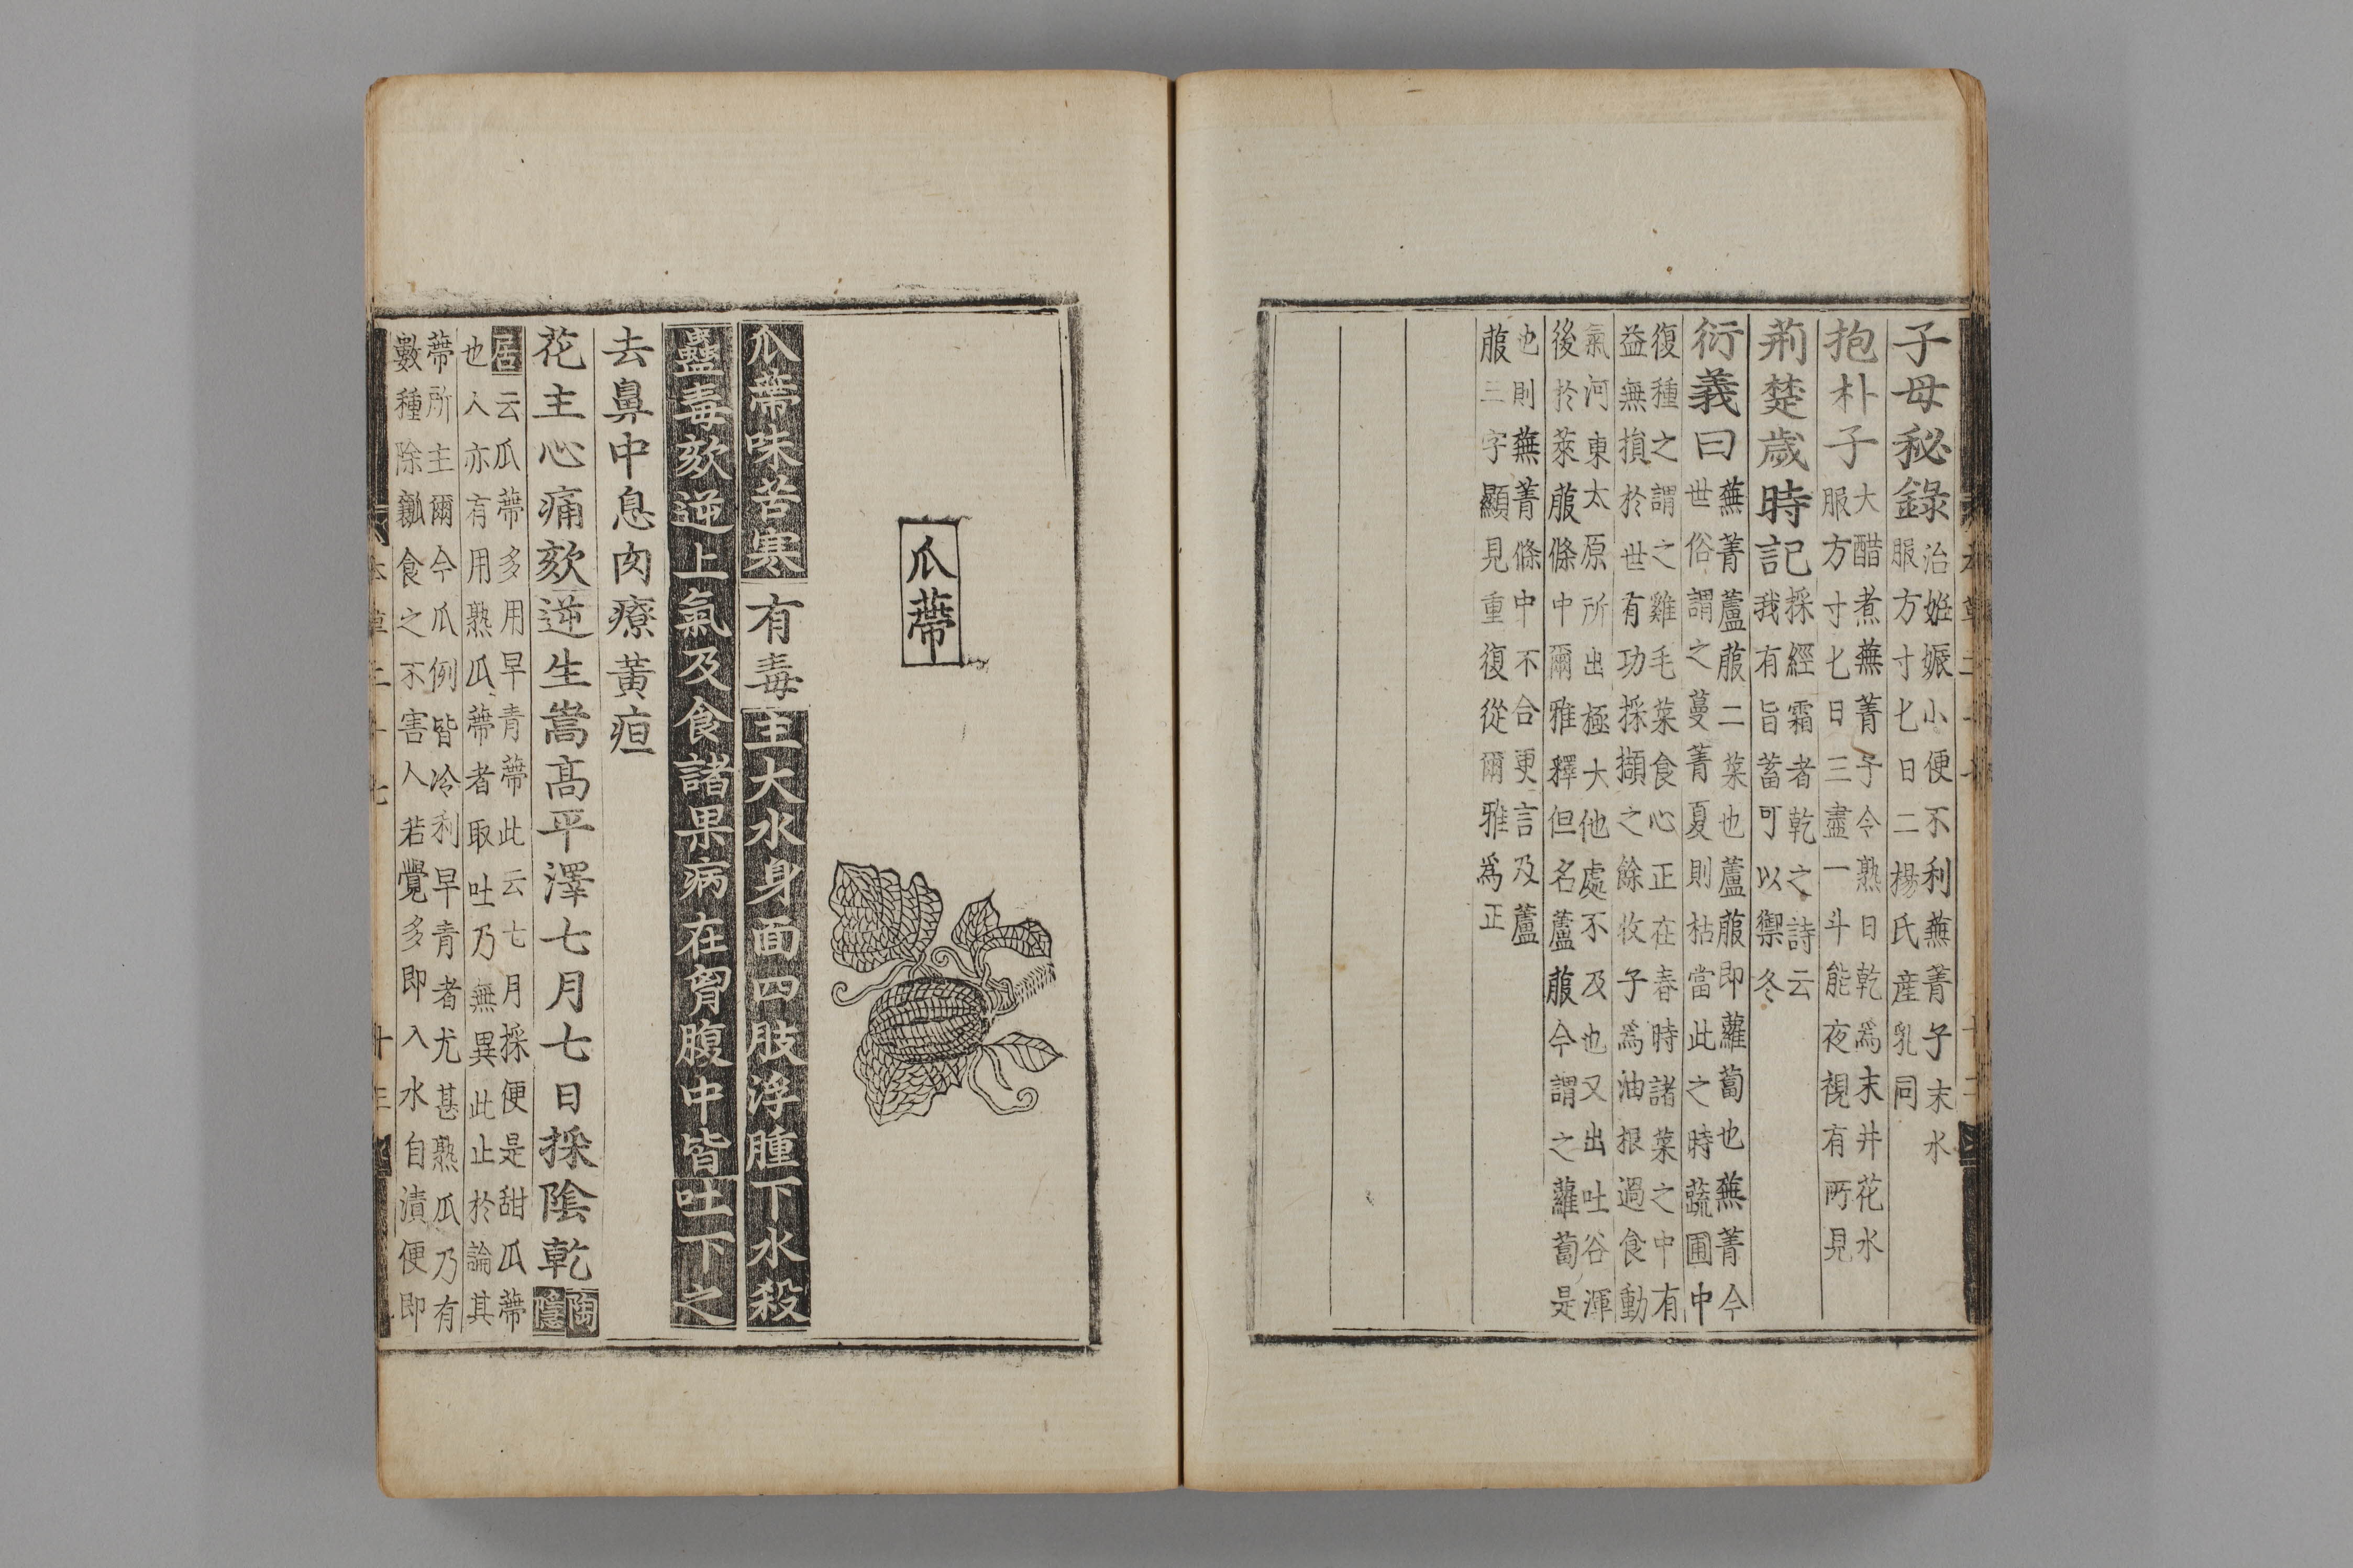 子母秘錄治姙娠小便不利蕪菁子末水
服方寸匕日二楊氏産乳同
抱朴子大醋煮蕪菁子令熟日乾爲末井花水
服方寸匕日三盡一斗能夜視有所見
荊楚歲時記採經霜者乾之詩云
我有旨蓄可以禦冬
衍義曰蕪菁蘆菔二菜也蘆菔即蘿蔔也蕪菁今
世俗謂之蔓菁夏則枯當此之時蔬圃中
復種之謂之雞毛菜食心正在春時諸菜之中有
益無損於世有功採擷之餘收子爲油根過食動
氣河東太原所出極大他處不及也又出吐谷渾
後於萊菔條中爾雅釋但名蘆菔今謂之蘿蔔是
也則蕪菁條中不合更言及蘆
菔三字顯見重復從爾雅爲正
瓜蔕
瓜蔕味苦寒有毒主大水身面四肢浮腫下水殺
蠱毒欬逆上氣及食諸果病在胷腹中皆吐下之
去鼻中息肉療黃疸
花主心痛欬逆生嵩高平澤七月七日採陰乾陶隱
居云瓜蔕多用早青蔕此云七月採便是甜瓜蔕
也人亦有用熟瓜蔕者取吐乃無異此止於論其
蔕所主爾今瓜例皆冷利早青者尤甚熟瓜乃有
數種除瓤食之不害人若覺多即入水自漬便即